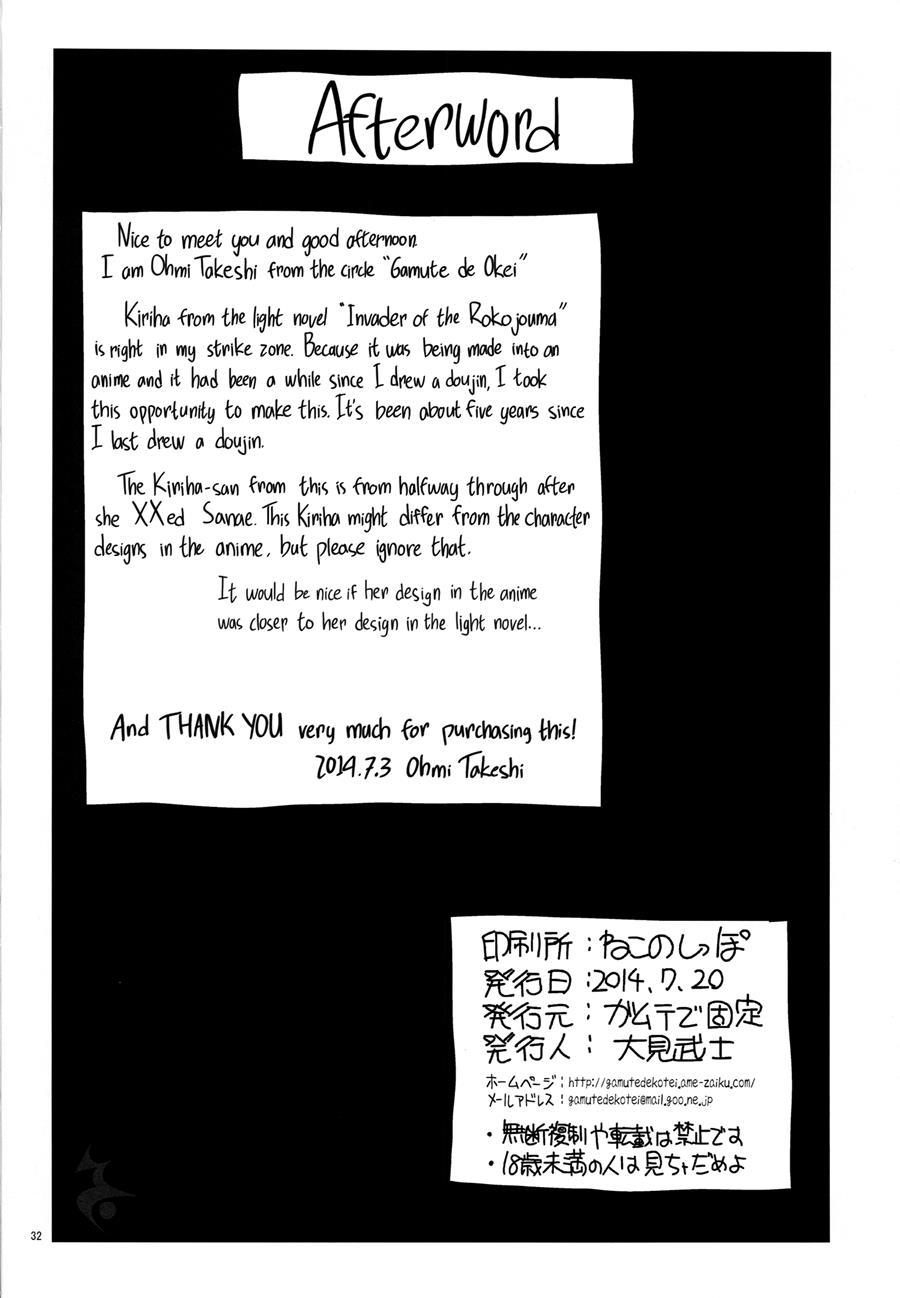 Afterword
Nice to meet you and good afternoon.
I am Ohmi Takeshi from the circle "Gamute de Okei"
Kiriha from the light novel "Invader of the Rokojouma"
is right in my strike zone. Because it was being made into an
anime and it had been a while since I drew a doujin, I took
this opportunity to make this. It's been about five years since
I last drew a doujin.
The Kiriha-san from this is from halfway through after
she XXed Sanae. This Kiriha might differ from the character
designs in the anime, but please ignore that.
It would be nice if her design in the anime
was closer to her design in the light novel...
And THANK YOU very much for purchasing this!
2014.7.3 Ohmi Takeshi
印刷所：ねこのしっぽ
発行日：2014.7.20
発行元：ガムテで固定
発行人：大見武士
ホームページ：http://gamutedekotei.ame-zaiku.com/
メールアドレス：gamutedekotei@mail.goo.ne.jp
・無断複制や転載は禁止です
・18歳未満の人は見ちゃだめよ
32